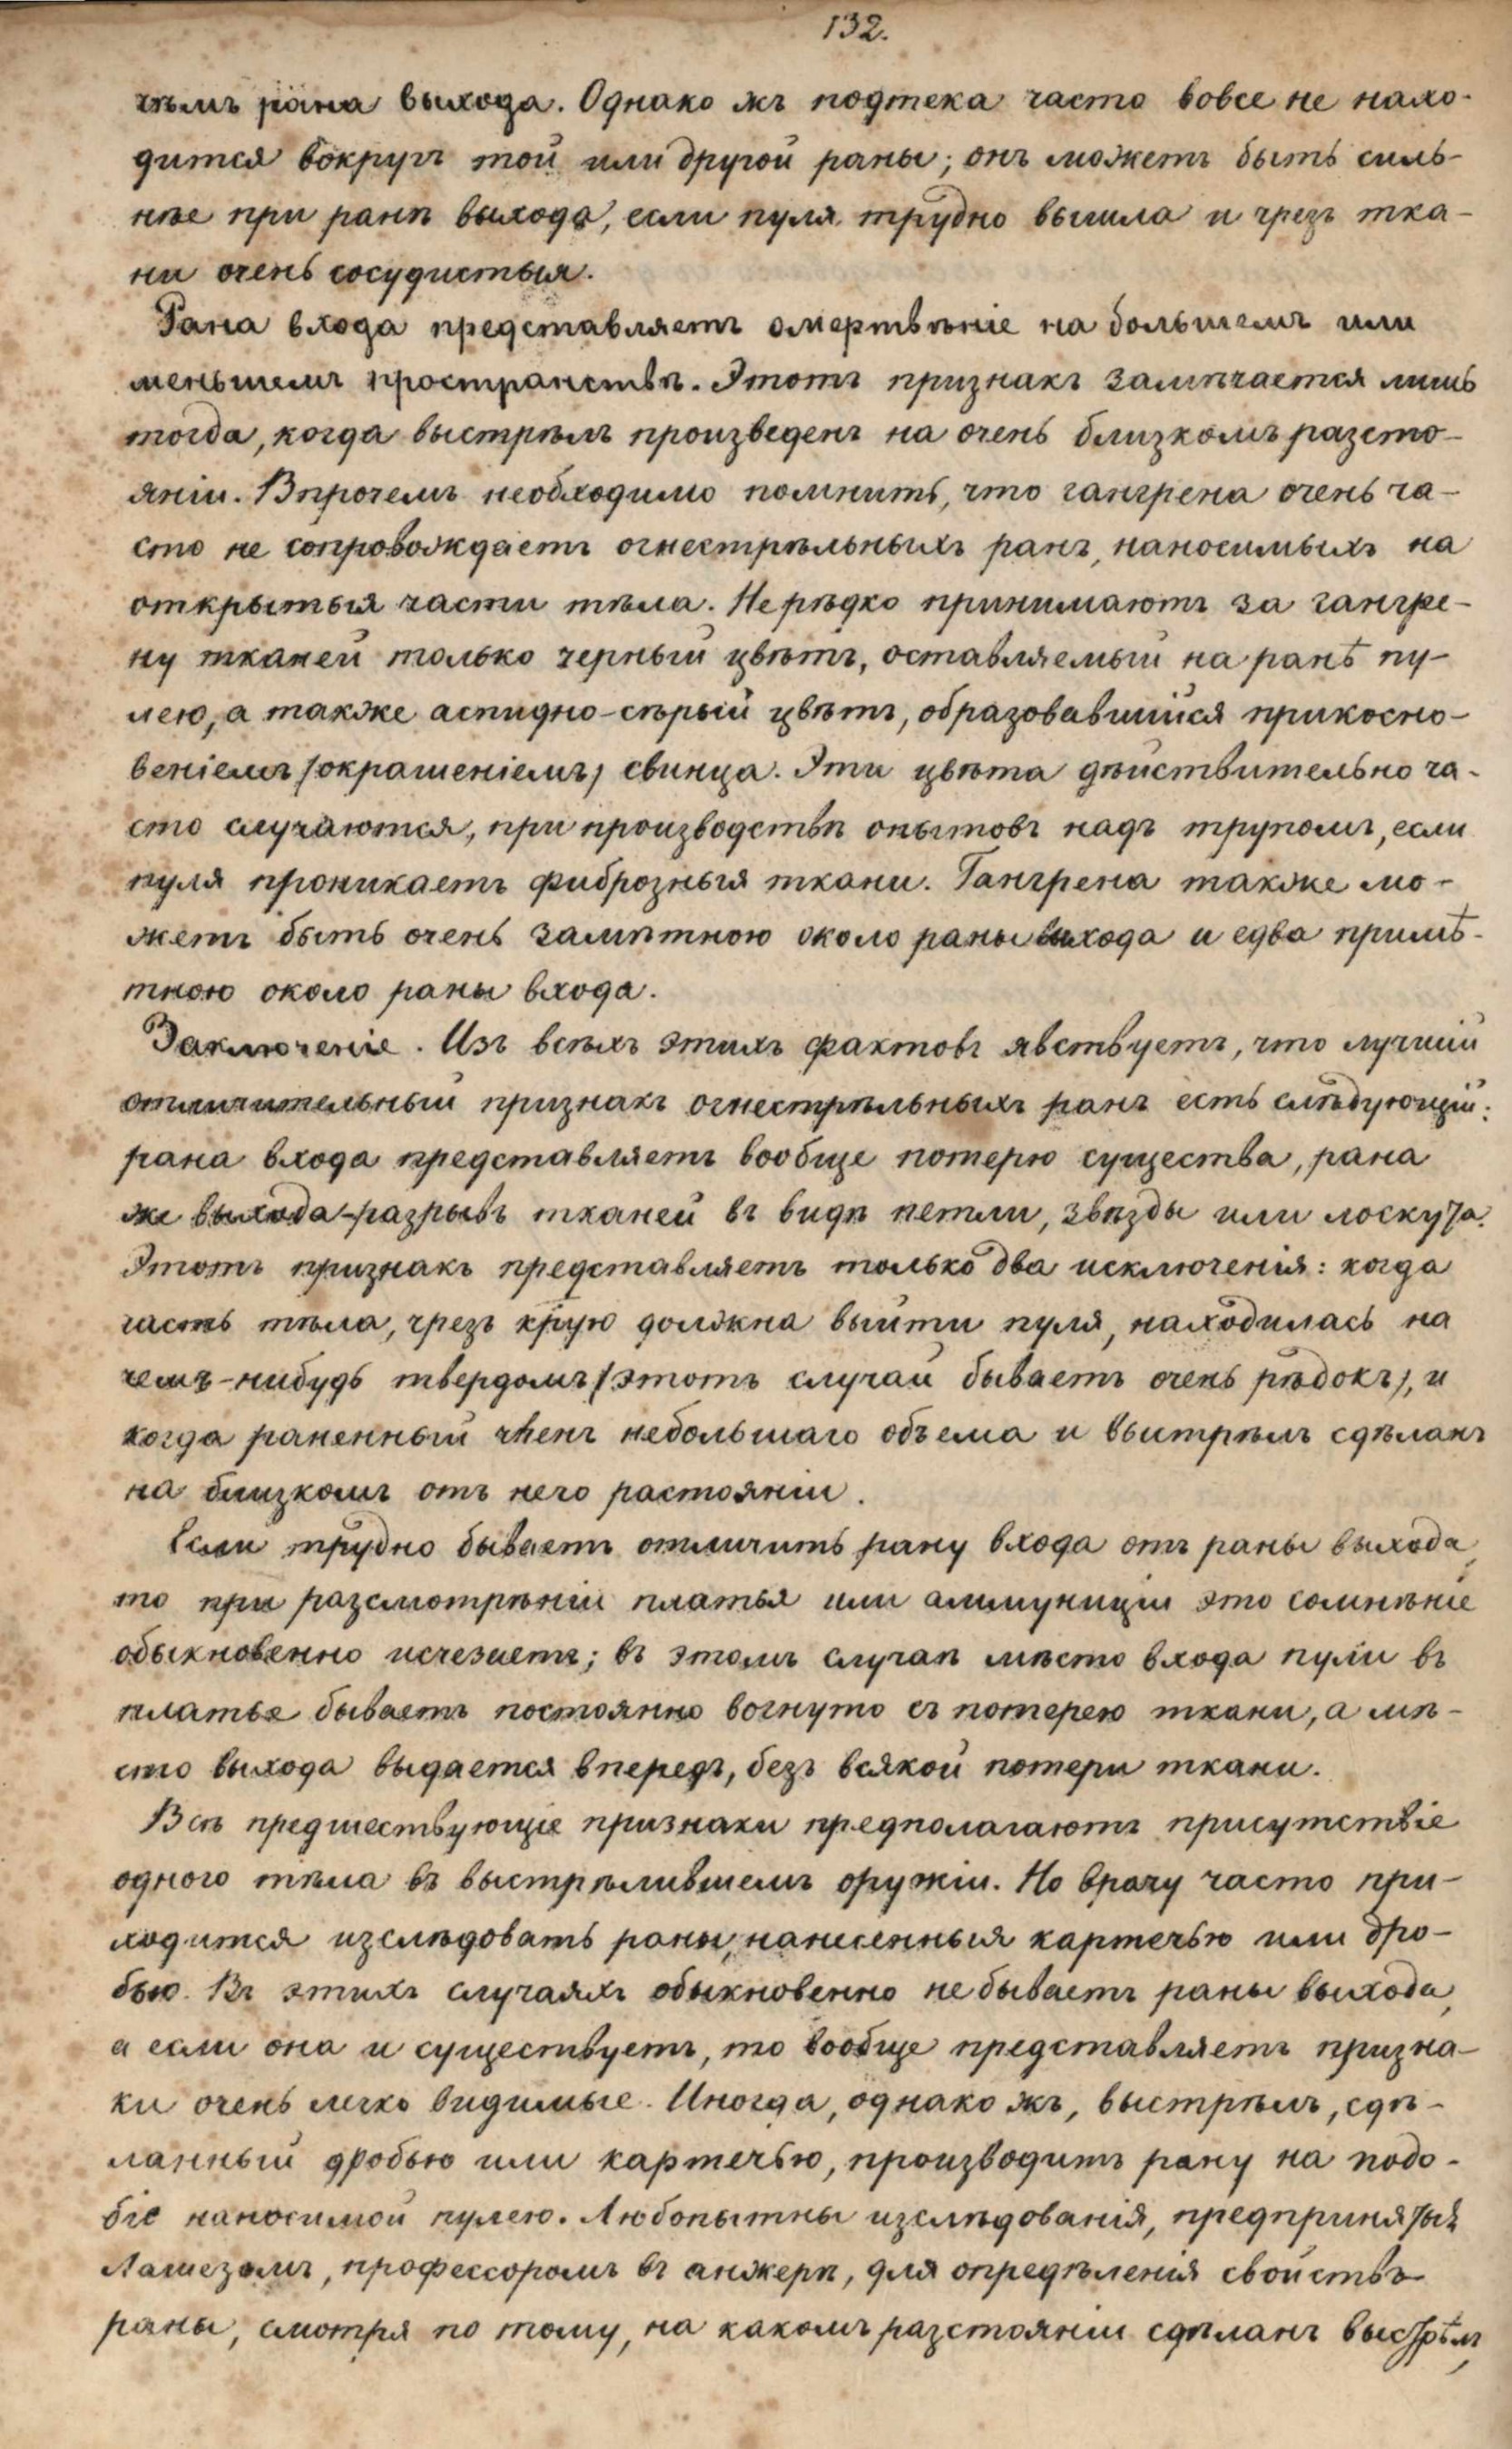 132.
чѣмъ рана выхода. Однако жъ подтека часто вовсе не нахо-
дится вокругъ той или другой раны; онъ можетъ быть силь-
нѣе при ранѣ выхода, если пуля трудно вышла и чрезъ тка-
ни очень сосудистыя.
Рана входа представляетъ омертвѣніе на большемъ или
меньшемъ пространствѣ. Этотъ признакъ замѣчается лишь
тогда, когда выстрѣлъ произведенъ на очень близкомъ разсто-
яніи. Впрочемъ необходимо помнить, что гангрена очень ча-
сто не сопровождаетъ огнестрѣльныхъ ранъ, наносимыхъ на
открытыя части тѣла. Не рѣдко принимаютъ за гангре-
ну тканей только черный цвѣтъ, оставляемый на ранѣ пу-
лею, а также аспидно-сѣрый цвѣтъ, образовавшійся прикосно-
веніемъ (окрашеніемъ) свинца. Эти цвѣта дѣйствительно ча-
сто случаются, при производствѣ опытовъ надъ трупомъ, если
пуля проникаетъ фиброзныя ткани. Гангрена также мо-
жетъ быть очень замѣтною около раны выхода и едва примѣ-
тною около раны входа.
Заключеніе. Изъ всѣхъ этихъ фактовъ явствуетъ, что лучшій
отличительный признакъ огнестрѣльныхъ ранъ есть слѣдующій:
рана входа представляетъ вообще потерю существа, рана
же выхода-разрывъ тканей въ видѣ петли, звѣзды или лоскута.
Этотъ признакъ представляетъ только два исключенія: когда
часть тѣла, чрезъ крую должна выйти пуля, находилась на
чемъ-нибудь твердомъ (этотъ случай бываетъ очень рѣдокъ), и
когда раненный членъ небольшаго объема и выстрѣлъ сдѣланъ
на близкомъ отъ него растояніи.
Если трудно бываетъ отличить рану входа отъ раны выхода,
то при разсмотрѣніи платья или аммуниціи это сомнѣніе
обыкновенно исчезаетъ; въ этомъ случаѣ мѣсто входа пули въ
платье бываетъ постоянно вогнуто съ потерею ткани, а мѣ-
сто выхода выдается впередъ, безъ всякой потери ткани.
Всѣ предшествующіе признаки предполагаютъ присутствіе
одного тѣла въ выстрѣлившемъ оружіи. Но врачу часто при-
ходится изслѣдовать раны, нанесенныя картечью или дро-
бью. Въ этихъ случаяхъ обыкновенно не бываетъ раны выхода,
а если она и существуетъ, то вообще представляетъ призна-
ки очень легко видимые. Иногда, однако жъ, выстрѣлъ, сдѣ-
ланный дробью или картечью, производитъ рану на подо-
біе наносимой пулею. Любопытны изслѣдованія, предпринятыя
Лашезомъ, профессоромъ въ анжерѣ, для опредѣленія свойствъ
раны, смотря по тому, на какомъ разстояніи сдѣланъ выстрѣлъ,